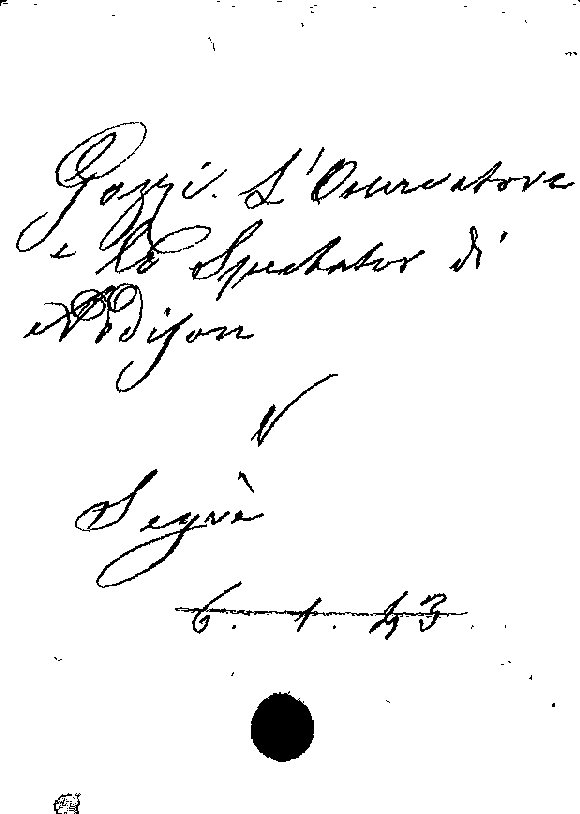 Gozzi. L'Osservatore
e lo Spectator di
Addison
V
Segrè
6. 1. 43